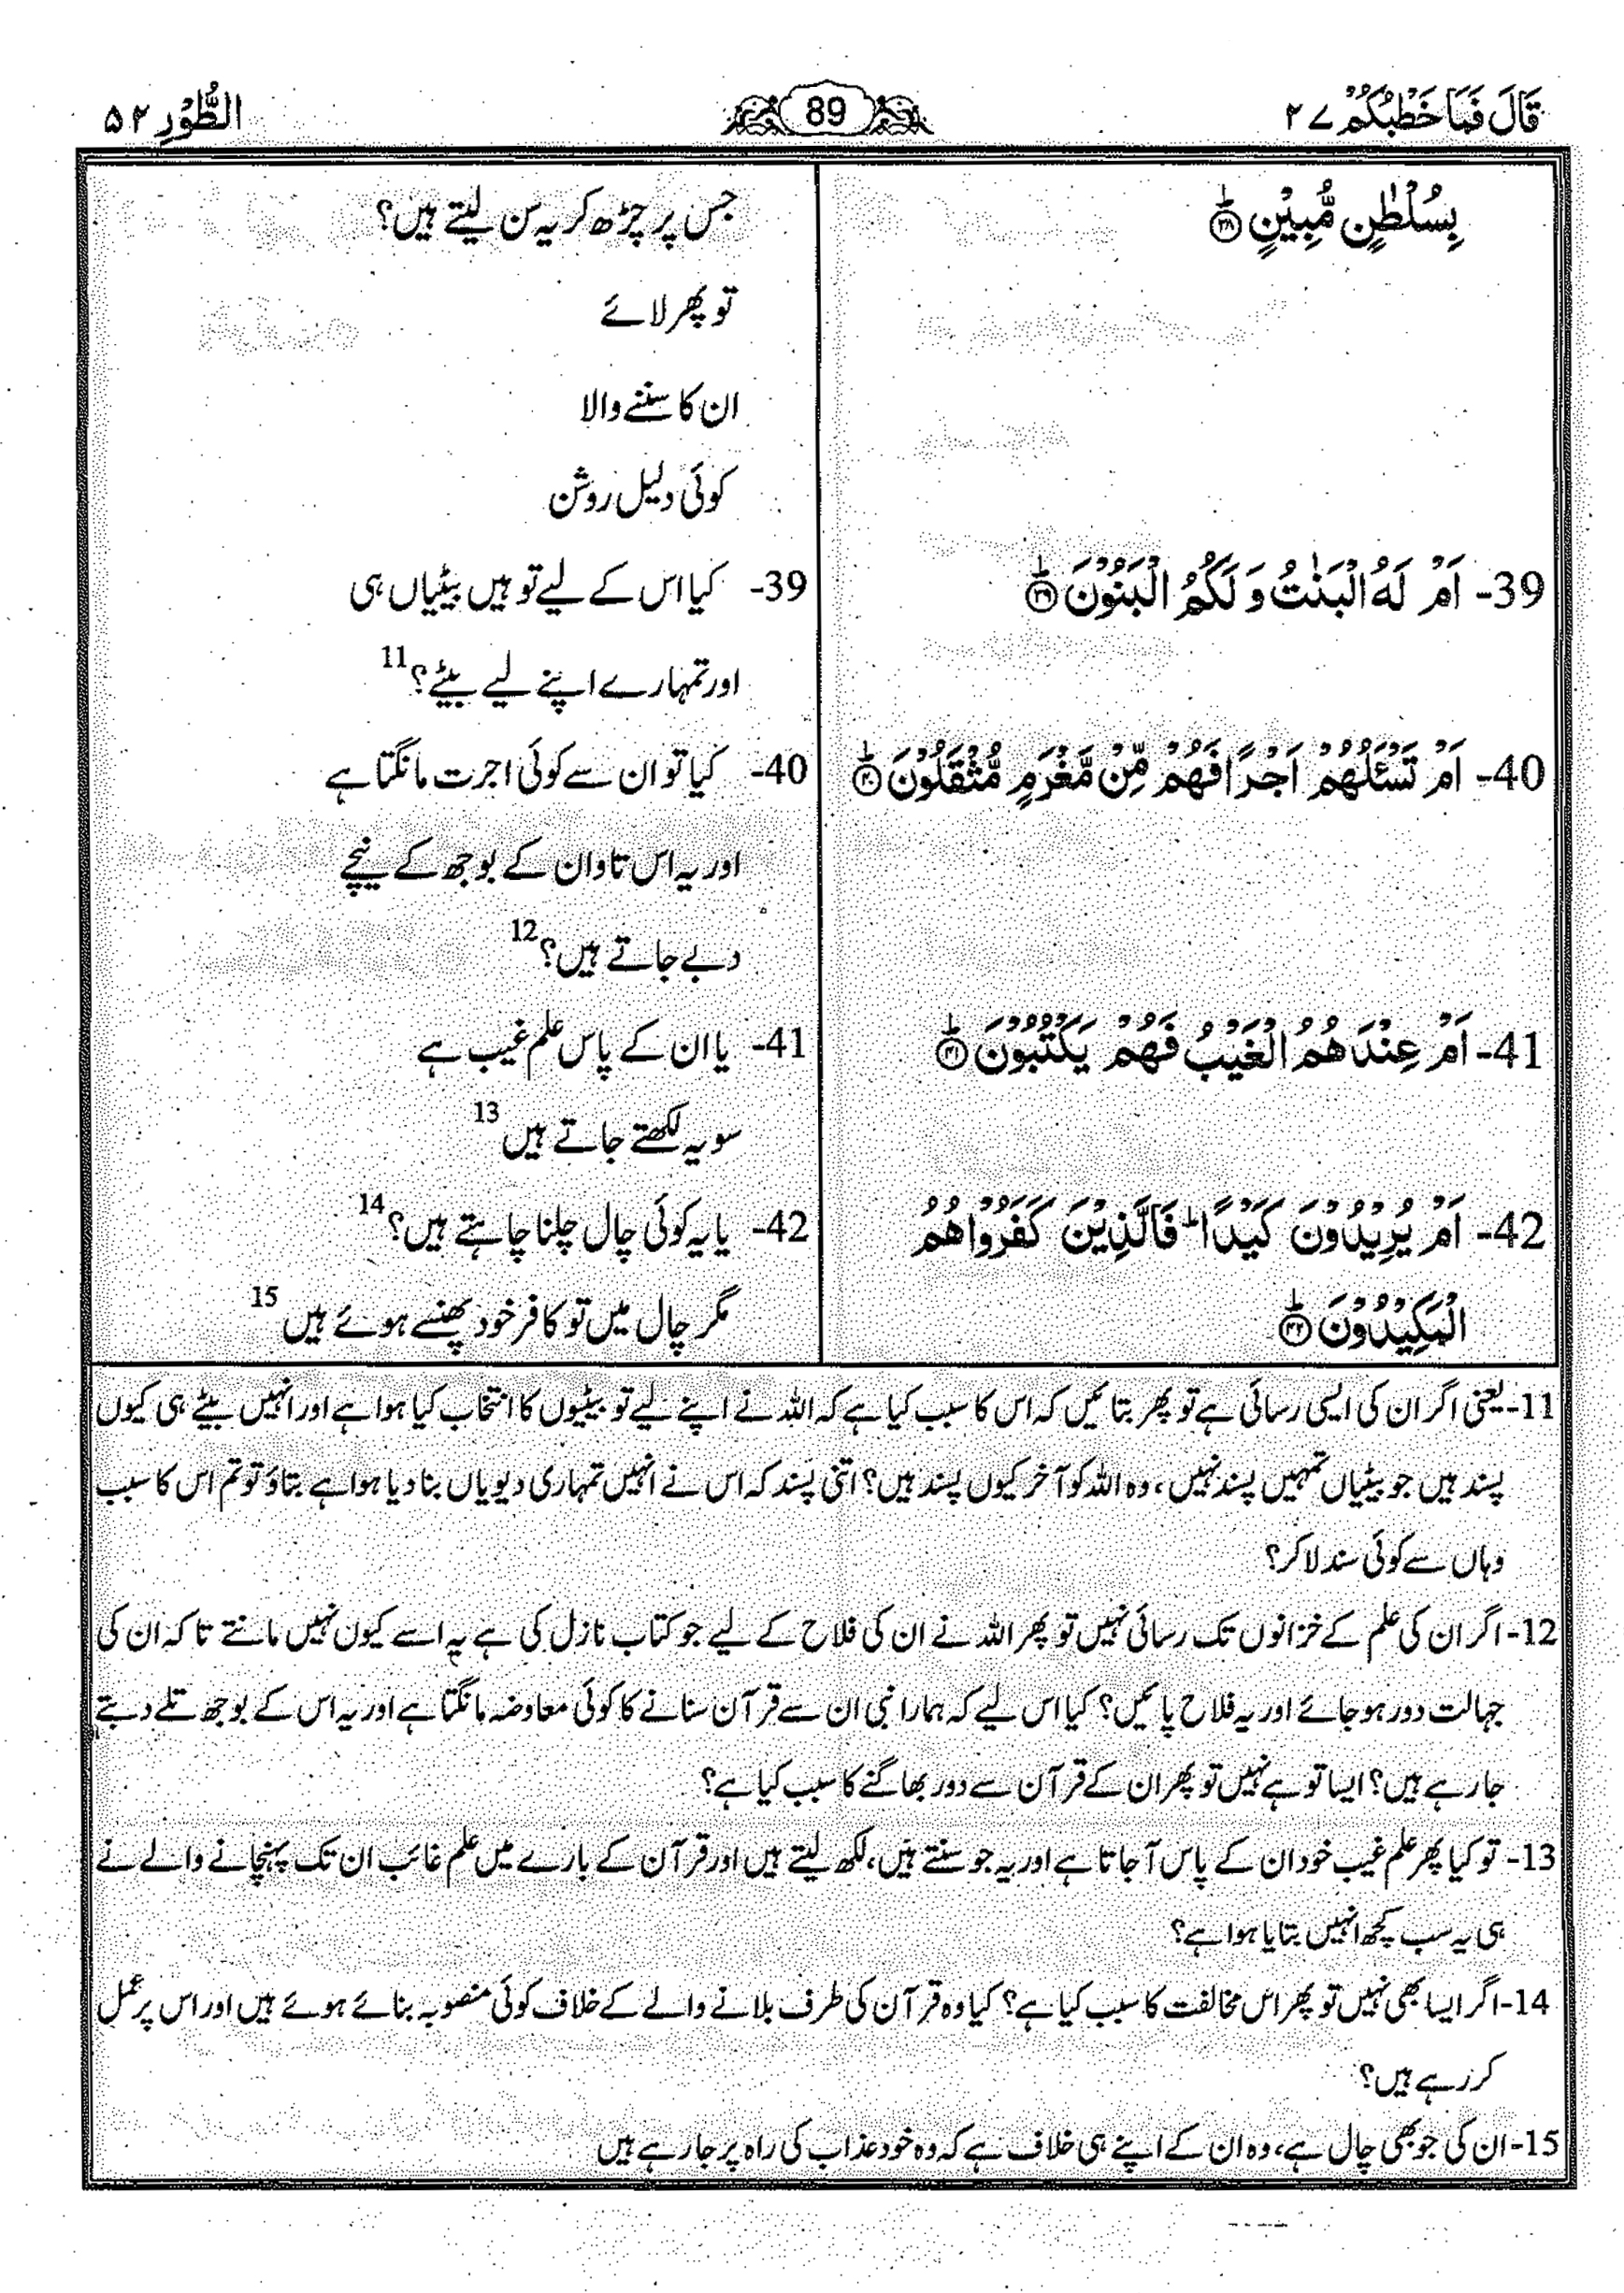 قَالَ فَمَا خَطْبُكُمْ ۲۷
89
الطُّوْرِ ۵۲
بِسُلْطٰنٍ مُّبِیْنٍ ؕ﴿۳۸﴾
39- اَمْ لَهُ الْبَنٰتُ وَ لَكُمُ الْبَنُوْنَ ؕ﴿۳۹﴾
40- اَمْ تَسْـَٔلُهُمْ اَجْرًا فَهُمْ مِّنْ مَّغْرَمٍ مُّثْقَلُوْنَ ؕ﴿۴۰﴾
41- اَمْ عِنْدَهُمُ الْغَیْبُ فَهُمْ یَكْتُبُوْنَ ؕ﴿۴۱﴾
42- اَمْ یُرِیْدُوْنَ كَیْدًا ؕ فَالَّذِیْنَ كَفَرُوْا هُمُ
الْمَكِیْدُوْنَ ؕ﴿۴۲﴾
جس پر چڑھ کر یہ سن لیتے ہیں؟
تو پھر لائے
ان کا سننے والا
کوئی دلیل روشن
39- کیا اس کے لیے تو ہیں بیٹیاں ہی
اور تمہارے اپنے لیے بیٹے؟ 11
40- کیا تو ان سے کوئی اجرت مانگتا ہے
اور یہ اس تاوان کے بوجھ کے نیچے
دبے جاتے ہیں؟ 12
41- یا ان کے پاس علم غیب ہے
سو یہ لکھتے جاتے ہیں 13
42- یا یہ کوئی چال چلنا چاہتے ہیں؟ 14
مگر چال میں تو کافر خود پھنسے ہوئے ہیں 15
11- یعنی اگر ان کی ایسی رسائی ہے تو پھر بتائیں کہ اس کا سبب کیا ہے کہ اللہ نے اپنے لیے تو بیٹیوں کا انتخاب کیا ہوا ہے اور انہیں بیٹے ہی کیوں
پسند ہیں جو بیٹیاں تمہیں پسند نہیں، وہ اللہ کو آخر کیوں پسند ہیں؟ اتنی پسند کہ اس نے انہیں تمہاری دیویاں بنا دیا ہوا ہے بتاؤ تو تم اس کا سبب
وہاں سے کوئی سند لا کر؟
12- اگر ان کی علم کے خزانوں تک رسائی نہیں تو پھر اللہ نے ان کی فلاح کے لیے جو کتاب نازل کی ہے یہ اسے کیوں نہیں مانتے تا کہ ان کی
جہالت دور ہو جائے اور یہ فلاح پائیں؟ کیا اس لیے کہ ہمارا نبی ان سے قرآن سنانے کا کوئی معاوضہ مانگتا ہے اور یہ اس کے بوجھ تلے دبتے
جا رہے ہیں؟ ایسا تو ہے نہیں تو پھر ان کے قرآن سے دور بھاگنے کا سبب کیا ہے؟
13- تو کیا پھر علم غیب خود ان کے پاس آ جاتا ہے اور یہ جو سنتے ہیں، لکھ لیتے ہیں اور قرآن کے بارے میں علم غائب ان تک پہنچانے والے نے
ہی یہ سب کچھ انہیں بتایا ہوا ہے؟
14- اگر ایسا بھی نہیں تو پھر اس مخالفت کا سبب کیا ہے؟ کیا وہ قرآن کی طرف بلانے والے کے خلاف کوئی منصوبہ بنائے ہوئے ہیں اور اس پر عمل
کر رہے ہیں؟
15- ان کی جو بھی چال ہے، وہ ان کے اپنے ہی خلاف ہے کہ وہ خود عذاب کی راہ پر جا رہے ہیں